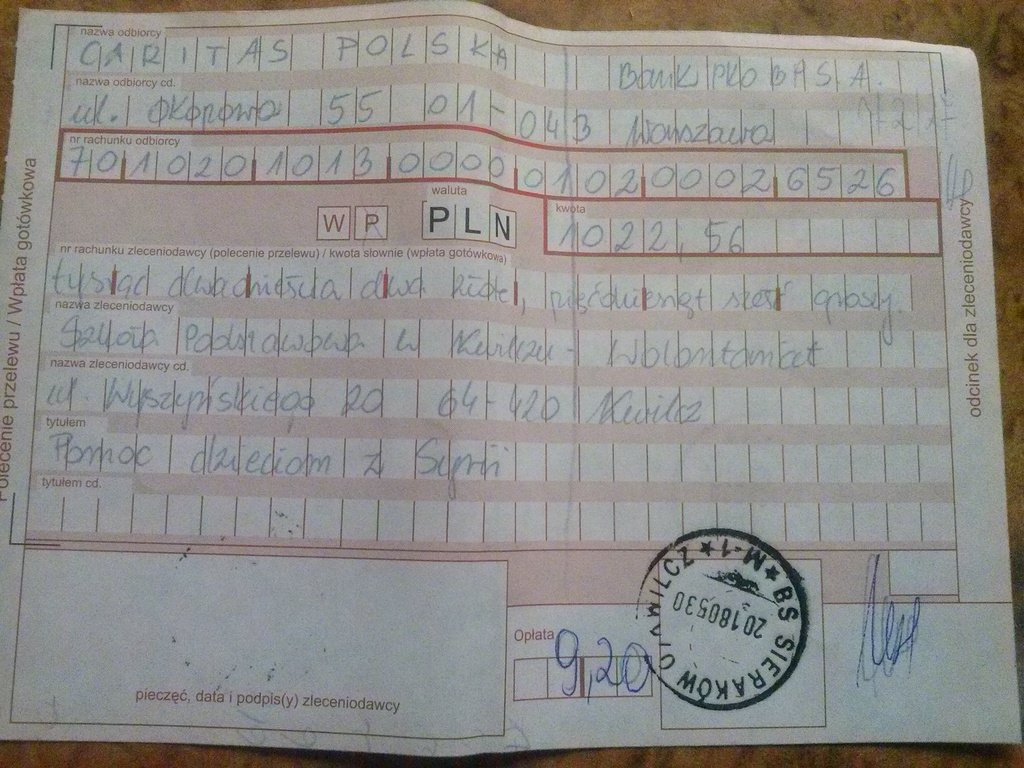 nazwa odbiorcy
CARITAS POLSKA Bank PKO BP S.A.
nazwa odbiorcy cd.
ul. Okopowa 55 01-043 Warszawa
nr rachunku odbiorcy
70 1020 1013 0000 0102 0002 6526
waluta
W P PLN
kwota
1022,56
nr rachunku zleceniodawcy (polecenie przelewu) / kwota słownie (wpłata gotówkowa)
tysiąc dwadzieścia dwa złote, pięćdziesiąt sześć groszy.
nazwa zleceniodawcy
Szkoła Podstawowa w Kwilczu - Wolontariat
nazwa zleceniodawcy cd.
ul. Wyszyńskiego 20 64-420 Kwilcz
tytułem
Pomoc dzieciom z Syrii
tytułem cd.
pieczęć, data i podpis(y) zleceniodawcy
Opłata
9,20
BS SIERAKÓW O/KWILCZ ★ M-1 ★
20180530
Polecenie przelewu / Wpłata gotówkowa
odcinek dla zleceniodawcy